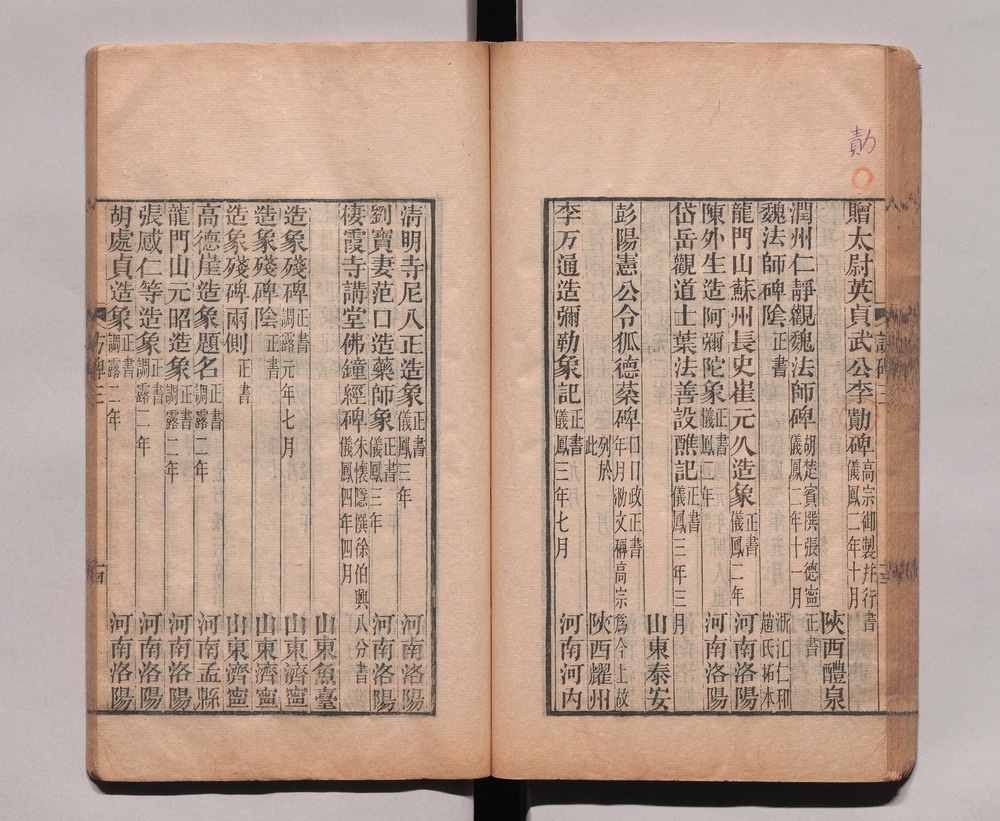 勣
贈太尉英貞武公李勣碑 高宗御製并行書 儀鳳二年十月 陝西醴泉
潤州仁靜觀魏法師碑 胡楚賓撰張德寧正書 儀鳳二年十一月 浙江仁和趙氏拓本
魏法師碑陰 正書
龍門山蘇州長史崔元久造象 正書 儀鳳二年 河南洛陽
陳外生造阿彌陀象 正書 儀鳳二年 河南洛陽
岱岳觀道士葉法善設醮記 正書 儀鳳三年三月 山東泰安
彭陽憲公令狐德棻碑 口口政正書 年月泐文稱高宗爲今上故列於此 陝西耀州
李万通造彌勒象記 正書 儀鳳三年七月 河南河内
清明寺尼八正造象 正書 儀鳳三年 河南洛陽
劉寶妻范口造藥師象 正書 儀鳳三年 河南洛陽
棲霞寺講堂佛鐘經碑 朱懷隱撰徐伯興八分書 儀鳳四年四月 山東魚臺
造象殘碑 正書 調露元年七月 山東濟寧
造象殘碑陰 正書 山東濟寧
造象殘碑兩側 正書 山東濟寧
高德崖造象題名 正書 調露二年 河南孟縣
龍門山元昭造象 正書 調露二年 河南洛陽
張感仁等造象 正書 調露二年 河南洛陽
胡處貞造象 正書 調露二年 河南洛陽